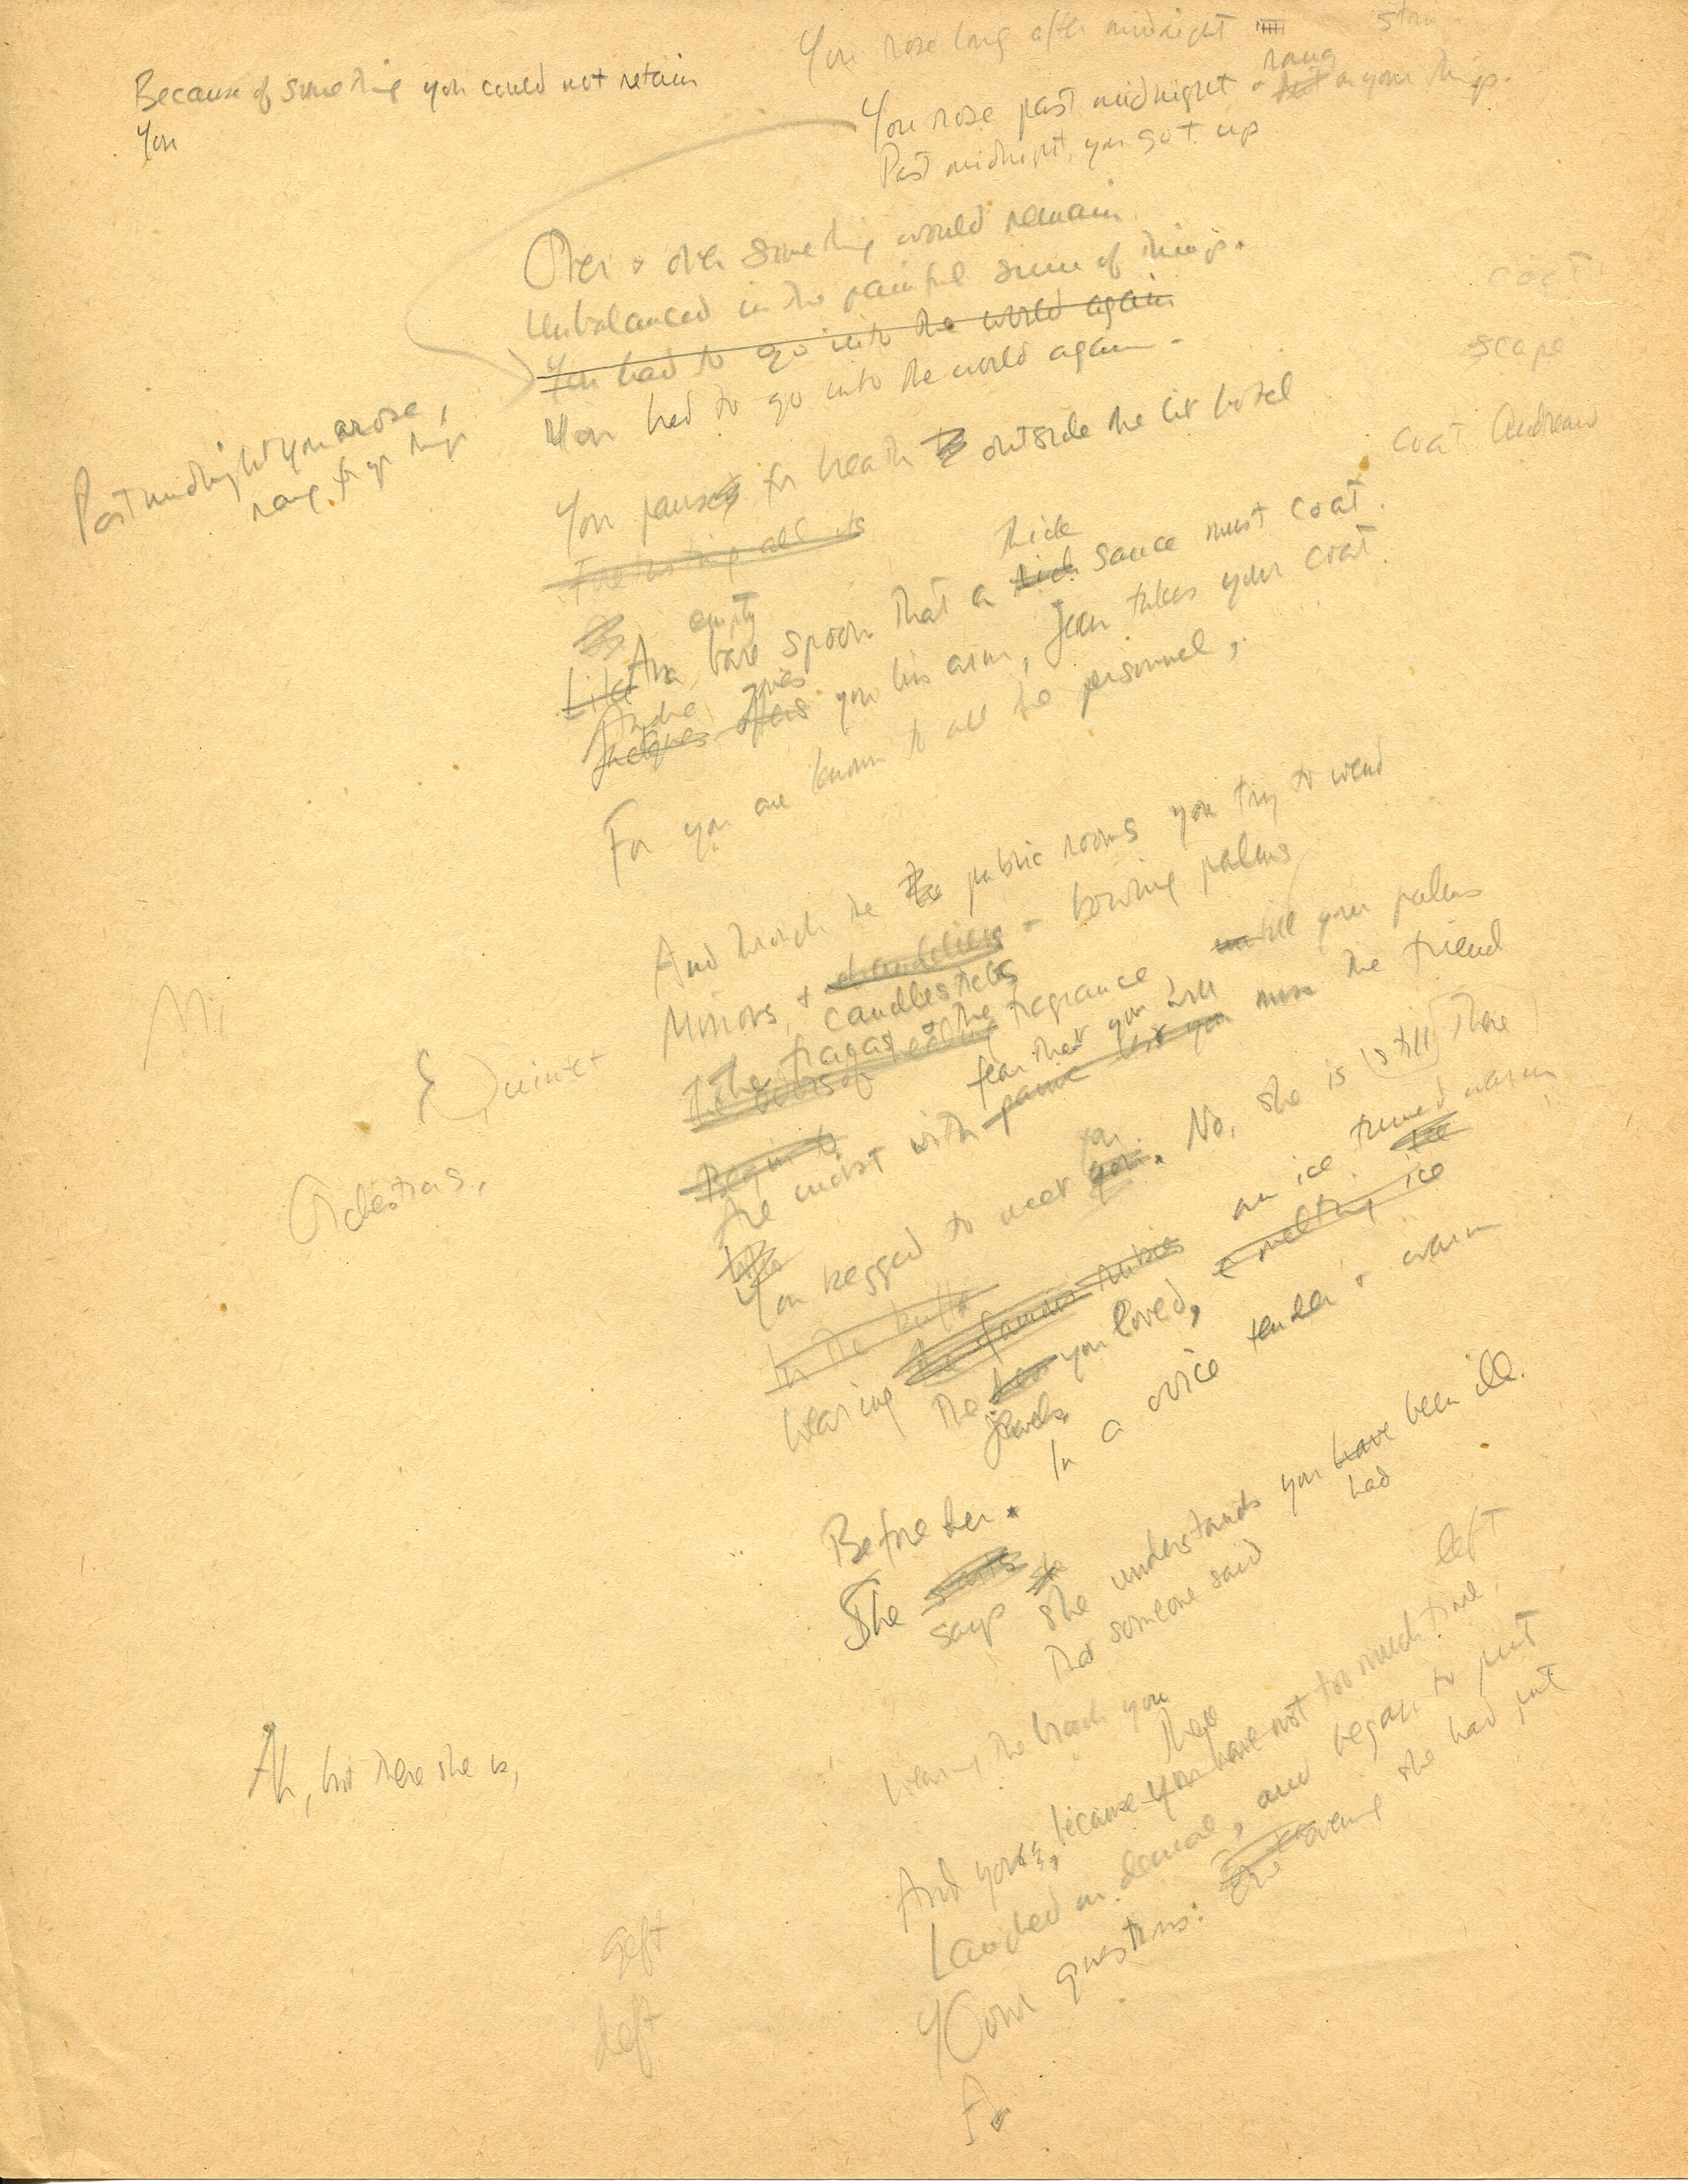 You rose long after midnight
Because of something you could not retain
You
rang
You rose past midnight + on your things.
Past midnight, you got up
Over + over something would remain
Unbalanced in the painful sum of things.
You had to go into the world again
You had to go into the world again.
coat
scape
coat Andrean
Past midnight you arose,
rang for yr things
You paused for breath outside the lit hotel
thick
empty
Like An bare spoon that a rich sauce must coat.
Andre gives
Jacques offers you his arm, Jean takes your coat.
For you are known to all the personnel,
And through the the public rooms you try to wend
Mirrors + chandeliers + bowing palms
candlesticks
+ the fragrance till your palms
Mi
Quintet
Begin to
fear that you will
Are moist with panic lest you miss the friend
Orchestras,
You begged to meet you. No, she is still there
an ice turned warm
In the
Wearing the famous rubies
the you loved, a melting ice
jewels
In a voice tender + warm
Before her.
She says she understands you have been ill.
had
that someone said
left
Wearing the brooch you
Ah, but there she is,
there
And yours, because you have not too much time,
Laughed in denial, and began to put
Your questions: evening she had put
gift
left